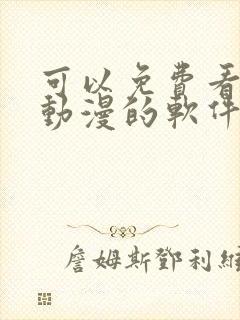 可以免費看
動漫的軟件
詹姆斯鄧利維